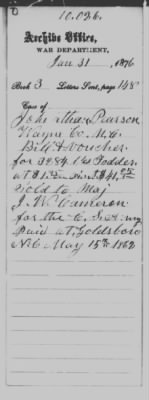 10.036.
Archive Office,
WAR DEPARTMENT,
Jan 31, 1876
Book 3 Letters Sent, page 148
Case of
John Pearson
Wayne Co. N.C.
Bill & Voucher
for 3284 lbs Fodder
at
Sold to Maj
J. W. Cameron
for the C. S. Army
Paid at Goldsboro
N.C. May 15th 1862